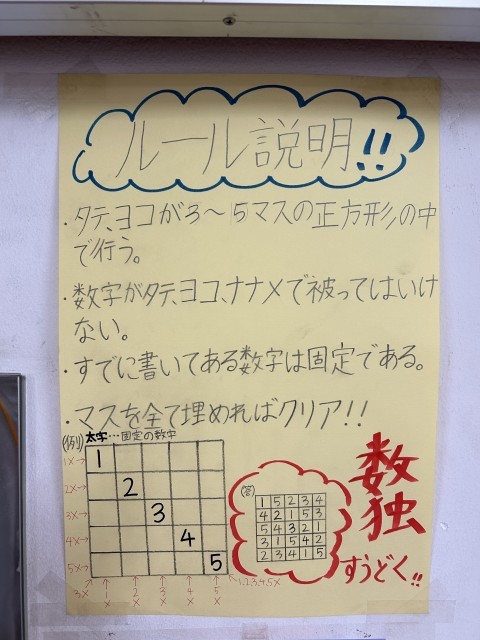 ルール説明!!
・タテ、ヨコが3～5マスの正方形の中
で行う。
・数字がタテ、ヨコ、ナナメで被ってはいけ
ない。
・すでに書いてある数字は固定である。
・マスを全て埋めればクリア!!
(例) 太字…固定の数字
1×→ 1
2×→ 2
3×→ 3
4×→ 4
5×→ 5
3× 1× 2× 3× 4× 5× 1,2,3,4,5×
(答)
1 5 2 3 4
4 2 1 5 3
5 4 3 2 1
3 1 5 4 2
2 3 4 1 5
数独
すうどく!!